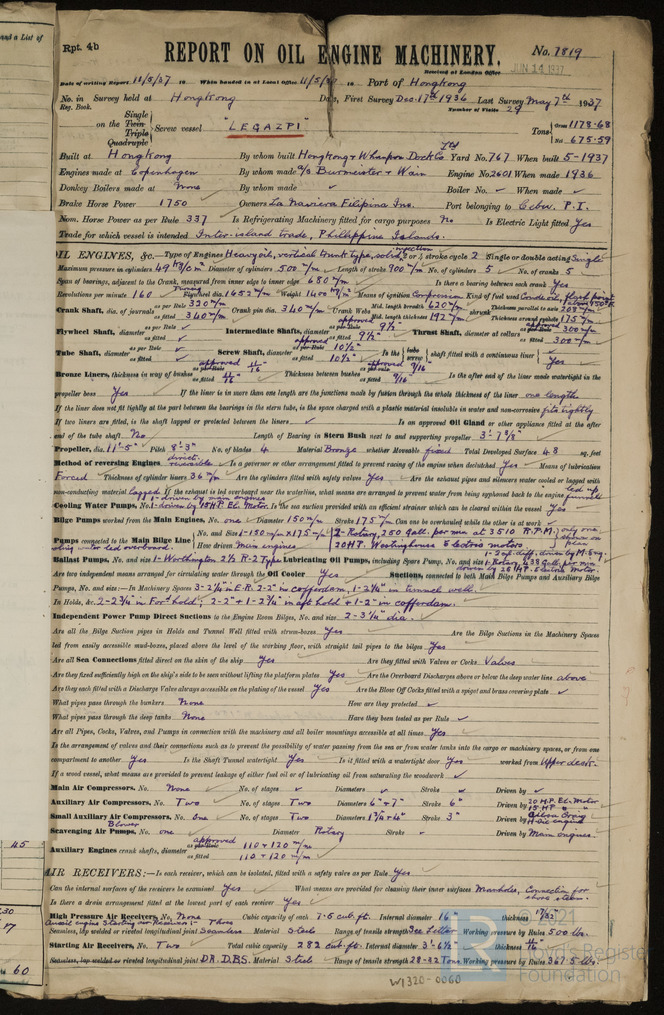 and a List of
Rpt. 4b
REPORT ON OIL ENGINE MACHINERY.
No. 7819
Received at London Office
JUN 14 1937
Date of writing Report 11/5/37 19 When handed in at Local Office 11/5/37 19 Port of Hongkong
No. in Survey held at Hongkong Date, First Survey Dec. 17th 1936 Last Survey May 7th 1937
Reg. Book.
Number of Visits 29
on the Single Twin Triple Quadruple Screw vessel "LEGAZPI"
Tons Gross 1178.68
Net 675.59
Built at Hongkong By whom built Hongkong & Whampoa Dock Co Ltd Yard No. 767 When built 5-1937
Engines made at Copenhagen By whom made A/S Burmeister & Wain Engine No. 2601 When made 1936
Donkey Boilers made at None By whom made ✓ Boiler No. ✓ When made ✓
Brake Horse Power 1750 Owners La Naviera Filipina Inc. Port belonging to Cebu. P.I.
Nom. Horse Power as per Rule 337 Is Refrigerating Machinery fitted for cargo purposes No Is Electric Light fitted Yes
Trade for which vessel is intended Inter-island trade, Philippine Islands.
OIL ENGINES, &c.—Type of Engines Heavy oil, vertical trunk type, solid injection 2 or 4 stroke cycle 2 Single or double acting Single
Maximum pressure in cylinders 49 Diameter of cylinders 500 m/m Length of stroke 900 m/m No. of cylinders 5 No. of cranks 5
Span of bearings, adjacent to the Crank, measured from inner edge to inner edge 680 m/m Is there a bearing between each crank Yes
Revolutions per minute 160 Flywheel dia. 1652 m/m Weight Means of ignition Compression Kind of fuel used Crude oil, flash point
Crank Shaft, dia. of journals as per Rule 320 m/m as fitted 340 m/m Crank pin dia. 340 m/m Crank Webs Mid. length breadth 630 m/m Mid. length thickness 192 m/m shrunk Thickness parallel to axis 208 m/m Thickness around eyehole 175 m/m
Flywheel Shaft, diameter as per Rule ✓ as fitted ✓ Intermediate Shafts, diameter approved 9½" as fitted 9½" Thrust Shaft, diameter at collars approved 300 m/m as fitted 300 m/m
Tube Shaft, diameter as per Rule ✓ as fitted ✓ Screw Shaft, diameter approved 10½" as fitted 10½" Is the tube screw shaft fitted with a continuous liner Yes
Bronze Liners, thickness in way of bushes approved 11/16 as fitted 11/16 Thickness between bushes approved 9/16 as fitted 9/16 Is the after end of the liner made watertight in the
propeller boss Yes If the liner is in more than one length are the junctions made by fusion through the whole thickness of the liner one length
If the liner does not fit tightly at the part between the bearings in the stern tube, is the space charged with a plastic material insoluble in water and non-corrosive fits tightly
If two liners are fitted, is the shaft lapped or protected between the liners ✓ Is an approved Oil Gland or other appliance fitted at the after
end of the tube shaft No Length of Bearing in Stern Bush next to and supporting propeller 3'-7⅞"
Propeller, dia. 11'-5" Pitch 8'-3" No. of blades 4 Material Bronze whether Moveable fixed Total Developed Surface 48 sq. feet
Method of reversing Engines direct reversible Is a governor or other arrangement fitted to prevent racing of the engine when declutched Yes Means of lubrication
Forced Thickness of cylinder liners 36 m/m Are the cylinders fitted with safety valves Yes Are the exhaust pipes and silencers water cooled or lagged with
non-conducting material lagged If the exhaust is led overboard near the waterline, what means are arranged to prevent water from being syphoned back to the engine led up funnel
Cooling Water Pumps, No. 1-driven by main engines 1-driven by 15 H.P. El. Motor Is the sea suction provided with an efficient strainer which can be cleared within the vessel Yes
Bilge Pumps worked from the Main Engines, No. one Diameter 150 m/m Stroke 175 m/m Can one be overhauled while the other is at work ✓
Pumps connected to the Main Bilge Line No. and Size 1-150 m/m x 175 m/m 2-Rotary, 250 Gall. per m at 3510 R.P.M. only one shown on plan
How driven Main engines 20 H.P. Westinghouse Electric motors
Ballast Pumps, No. and size 1-Worthington 2½ R-2 Type Lubricating Oil Pumps, including Spare Pump, No. and size 1-Rotary, 438 Gall. per min
Are two independent means arranged for circulating water through the Oil Cooler Yes Suctions, connected to both Main Bilge Pumps and Auxiliary Bilge
Pumps, No. and size:—In Machinery Spaces 3-2¼" in E.R. 2-2" in cofferdam, 1-2¼" in tunnel well.
In Holds, &c. 2-2¾" in For'd hold; 2-2" & 1-2¾" in aft hold & 1-2" in cofferdam.
Independent Power Pump Direct Suctions to the Engine Room Bilges, No. and size 2-3¼" dia.
Are all the Bilge Suction pipes in Holds and Tunnel Well fitted with strum-boxes Yes Are the Bilge Suctions in the Machinery Spaces
led from easily accessible mud-boxes, placed above the level of the working floor, with straight tail pipes to the bilges Yes
Are all Sea Connections fitted direct on the skin of the ship Yes Are they fitted with Valves or Cocks Valves
Are they fixed sufficiently high on the ship's side to be seen without lifting the platform plates Yes Are the Overboard Discharges above or below the deep water line above
Are they each fitted with a Discharge Valve always accessible on the plating of the vessel Yes Are the Blow Off Cocks fitted with a spigot and brass covering plate ✓
What pipes pass through the bunkers None How are they protected ✓
What pipes pass through the deep tanks None Have they been tested as per Rule ✓
Are all Pipes, Cocks, Valves, and Pumps in connection with the machinery and all boiler mountings accessible at all times Yes
Is the arrangement of valves and their connections such as to prevent the possibility of water passing from the sea or from water tanks into the cargo or machinery spaces, or from one
compartment to another Yes Is the Shaft Tunnel watertight Yes Is it fitted with a watertight door Yes worked from Upper deck.
If a wood vessel, what means are provided to prevent leakage of either fuel oil or of lubricating oil from saturating the woodwork ✓
Main Air Compressors, No. None No. of stages ✓ Diameters ✓ Stroke ✓ Driven by ✓
Auxiliary Air Compressors, No. Two No. of stages Two Diameters 6" & 7" Stroke 6" Driven by 20 H.P. El. Motor
Small Auxiliary Air Compressors, No. One No. of stages Two Stroke 3" Driven by
Blower
Scavenging Air Pumps, No. one Diameter Rotary Stroke ✓ Driven by Main engines.
Auxiliary Engines crank shafts, diameter approved 110 & 120 m/m as fitted 110 & 120 m/m
AIR RECEIVERS:—Is each receiver, which can be isolated, fitted with a safety valve as per Rule Yes
Can the internal surfaces of the receivers be examined Yes What means are provided for cleaning their inner surfaces Manholes, Connection for shore steam.
Is there a drain arrangement fitted at the lowest part of each receiver Yes
High Pressure Air Receivers, No. None Cubic capacity of each 7.5 cub. ft. Internal diameter 16" thickness 17/32"
Seamless, lap welded or riveted longitudinal joint Seamless Material Steel Range of tensile strength See Letter Working pressure by Rules 500 lbs.
Starting Air Receivers, No. Two Total cubic capacity 282 cub. ft. Internal diameter 3'-6½" thickness
Seamless, lap welded or riveted longitudinal joint D.R. D.B.S. Material Steel Range of tensile strength 28-32 Tons Working pressure by Rules 367.5 lbs.
W1320-0060
© 2021
Lloyd's Register
Foundation
45
30
17
60